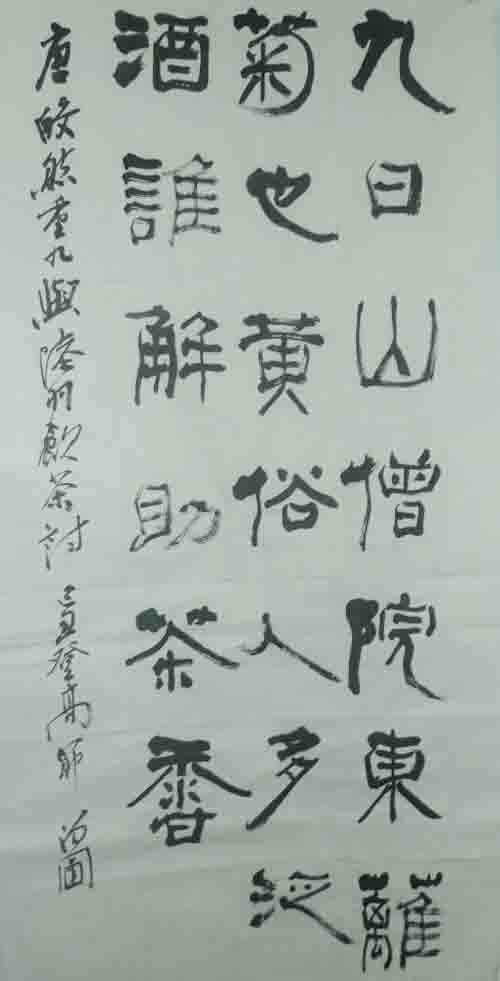 九日山僧院東蘺
菊也黃俗人多泛
酒誰解助茶香
唐皎然重九與陸羽飲茶詩 己丑登高節